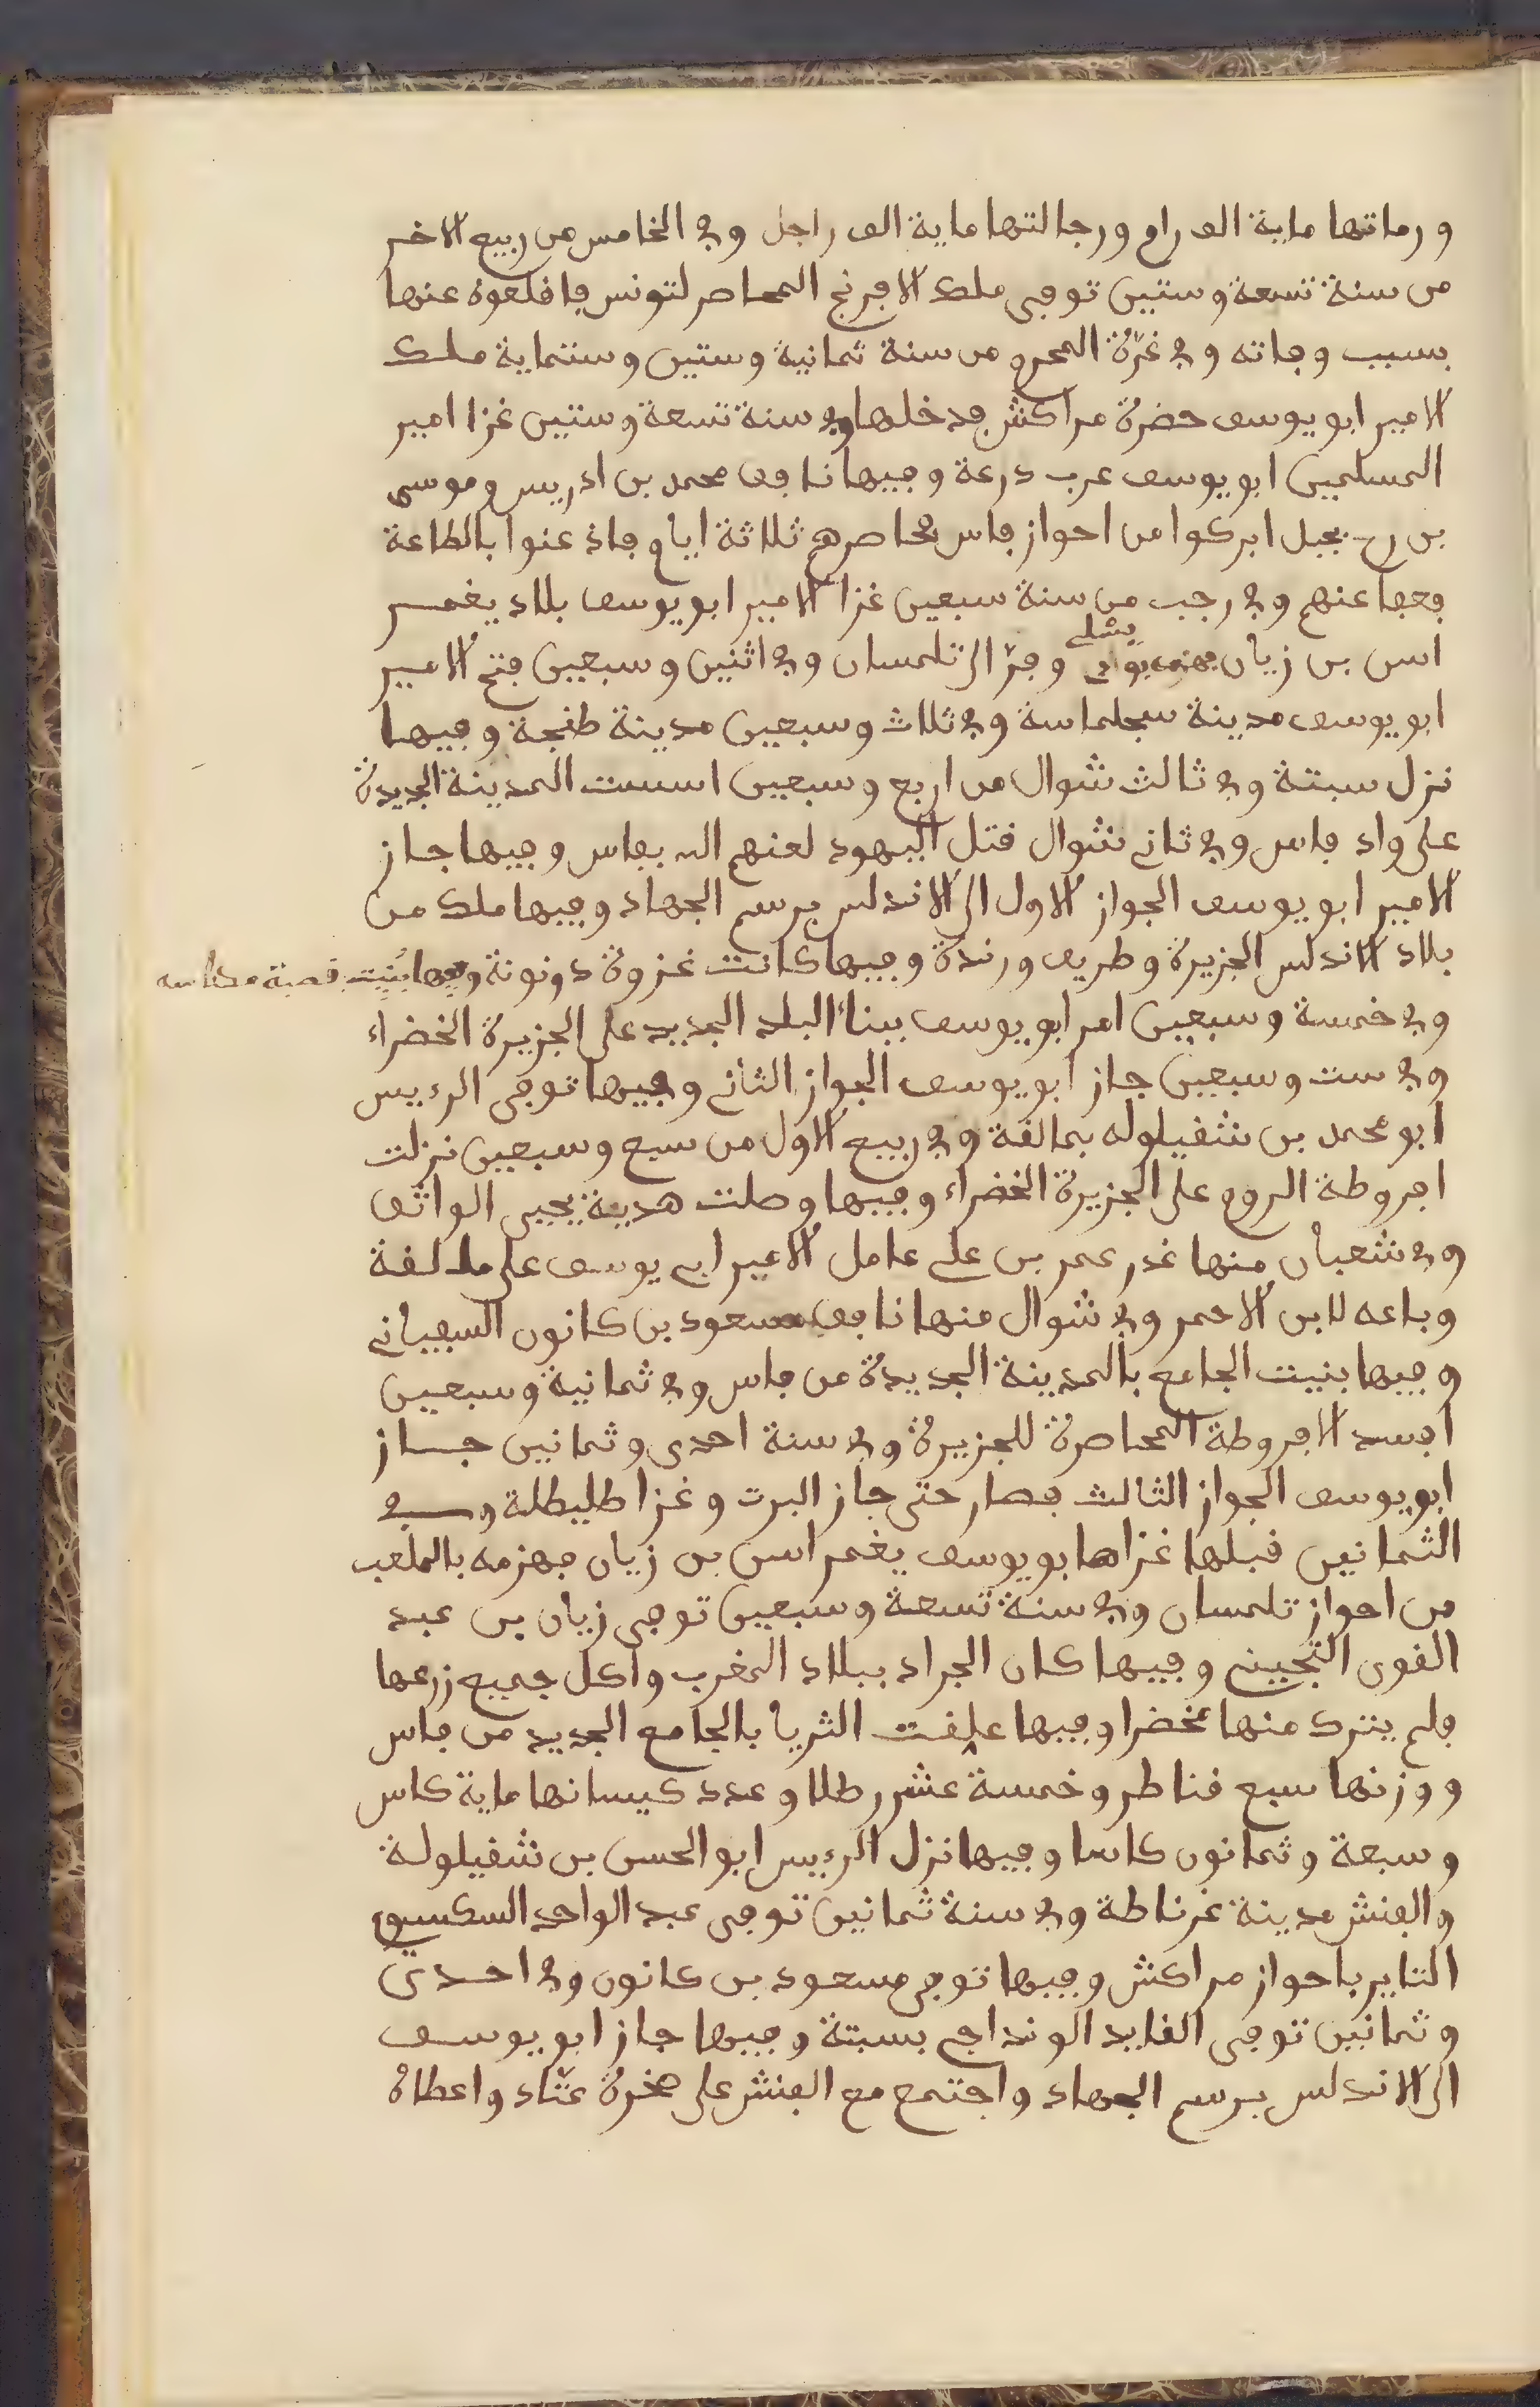 ورماتها ماية الف رام ورجالتها ماية الف راجل وفي الخامس من ربيع الاخر
من سنة تسعة وستين توفي ملك الافرنج المحاصر لتونس فاقلعوا عنها
بسبب وفاته وفي غرّة المحرم من سنة ثمانية وستين وستماية ملك
الامير ابو يوسف حضرة مراكش فدخلها وفي سنة تسعة وستين غزا امير
المسلمين ابو يوسف عرب درعة وفيها نافق محمد بن ادريس وموسى
بن رح بجبل ابركوا من احواز فاس فحاصرهم ثلاثة ايام فاذعنوا بالطاعة
فعفا عنهم وفي رجب من سنة سبعين غزا الامير ابو يوسف بلاد يغمر
اسن بن زيان فهزمه بواد يسلي وفرّ الى تلمسان وفي اثنين وسبعين فتح الامير
ابو يوسف مدينة سجلماسة وفي ثلاث وسبعين مدينة طنجة وفيها
نزل سبتة وفي ثالث شوال من اربع وسبعين اسست المدينة الجديدة
على واد فاس وفي ثاني شوال قتل اليهود لعنهم الله بفاس وفيها جاز
الامير ابو يوسف الجواز الاول الى الاندلس برسم الجهاد وفيها ملك من
بلاد الاندلس الجزيرة وطريف ورندة وفيها كانت غزوة دونونة وفيها بُنِيت قصبة مكناسه
وفي خمسة وسبعين امر ابو يوسف ببناء البلد الجديد على الجزيرة الخضراء
وفي ست وسبعين جاز ابو يوسف الجواز الثاني وفيها توفي الرءيس
ابو محمد بن شقيلوله بمالقة وفي ربيع الاول من سبع وسبعين نزلت
افروطة الروم على الجزيرة الخضراء وفيها وصلت هدية يحيى الواثق
وفي شعبان منها غدر عمر بن علي عامل الامير ابي يوسف على مالقة
وباعه لابن الاحمر وفي شوال منها نافق مسعود بن كانون السفياني
وفيها بنيت الجامع بالمدينة الجديدة من فاس وفي ثمانية وسبعين
افسد الافروطة المحاصرة للجزيرة وفي سنة احدى وثمانين جاز
ابو يوسف الجواز الثالث فصار حتى جاز البرت وغزا طليطلة وفي
الثمانين قبلها غزاها بو يوسف يغمراسن بن زيان فهزمه بالملعب
من احواز تلمسان وفي سنة تسعة وسبعين توفي زيان بن عبد
القوي التجيني وفيها كان الجراد ببلاد المغرب واكل جميع زرعها
فلم يترك منها مخضرا وفيها علقت الثريا بالجامع الجديد من فاس
ووزنها سبع قناطر وخمسة عشر رطلا وعدد كيسانها ماية كاس
وسبعة وثمانون كاسا وفيها نزل الرءيس ابو الحسن بن شقيلولة
والفنش مدينة غرناطة وفي سنة ثمانين توفي عبد الواحد السكسيوي
الثاير باحواز مراكش وفيها توفي مسعود بن كانون وفي احدى
وثمانين توفي القايد الونداجي بسبتة وفيها جاز ابو يوسف
الى الاندلس برسم الجهاد واجتمع مع الفنش على صخرة عبّاد واعطاه